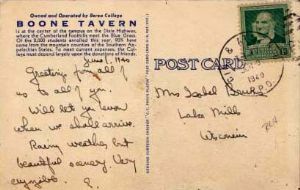 Owned and Operated by Berea College
BOONE TAVERN
is at the center of the campus on the Dixie Highway,
where the Cumberland Foothills meet the Blue Grass.
Of the students enrolled this year, 90% have
come from the mountain counties of the Southern
Appalachian states. To maintain the campus, the College
must depend largely upon the donations of friends.
June 1, 1940
Greetings from all of
us to all of you.
Will let you know
when we shall arrive.
Rainy weather, but
beautiful scenery. Very
enjoyable.
POST CARD
1940
Mrs Isabel
Lake Mills
Wisconsin